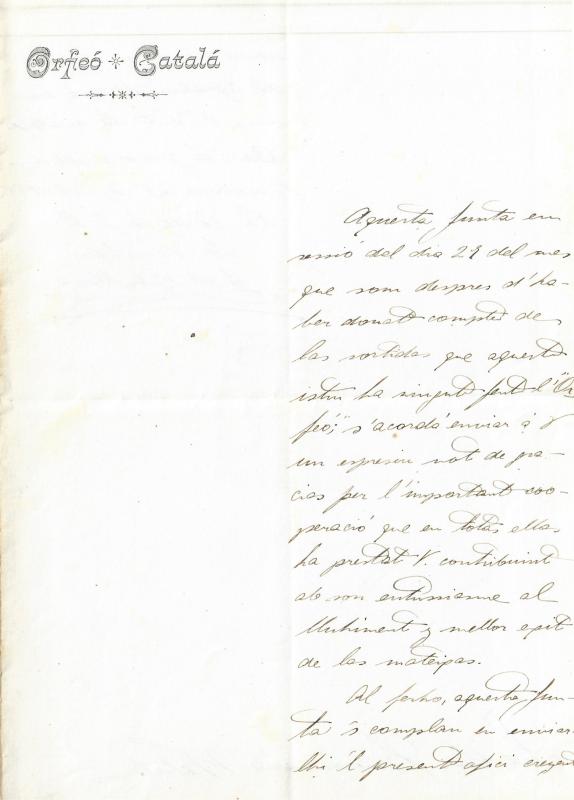 Orfeó Catalá
Aquesta Junta en
sessió del dia 29 del mes
que som despres d'ha-
ber donat compte de
las sortidas que aquest
istiu ha vingut fent l'"Or
feó," s'acordá enviar á V
un expresiu vot de gra-
cias per l'important coo-
peració que en totas ellas
ha prestat V. contribuint
ab son entussiasme al
lluhiment y mellor exit
de las mateixas.
Al ferho, aquesta Jun-
ta 's complau en enviar-
lhi 'l present ofici creyent